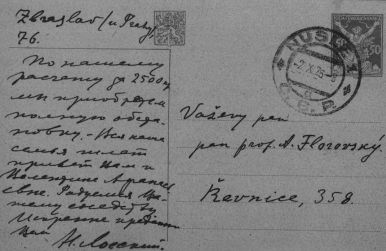 Zbraslav/u Prahy,
76.
По нашему
расчету за 2500 кч
мы приобретем
полную обста-
новку. – Вся наша
семья шлет
привет Вам и
Валентине Афанась-
евне. Радуемся Ва-
шему соседству
Искренне преданный
Вам
Н. Лосский.
Vážený pan
pan prof. A. Florovský.
Řevnice, 358.
NUSLE
2.X.25
Č.S.P.
50